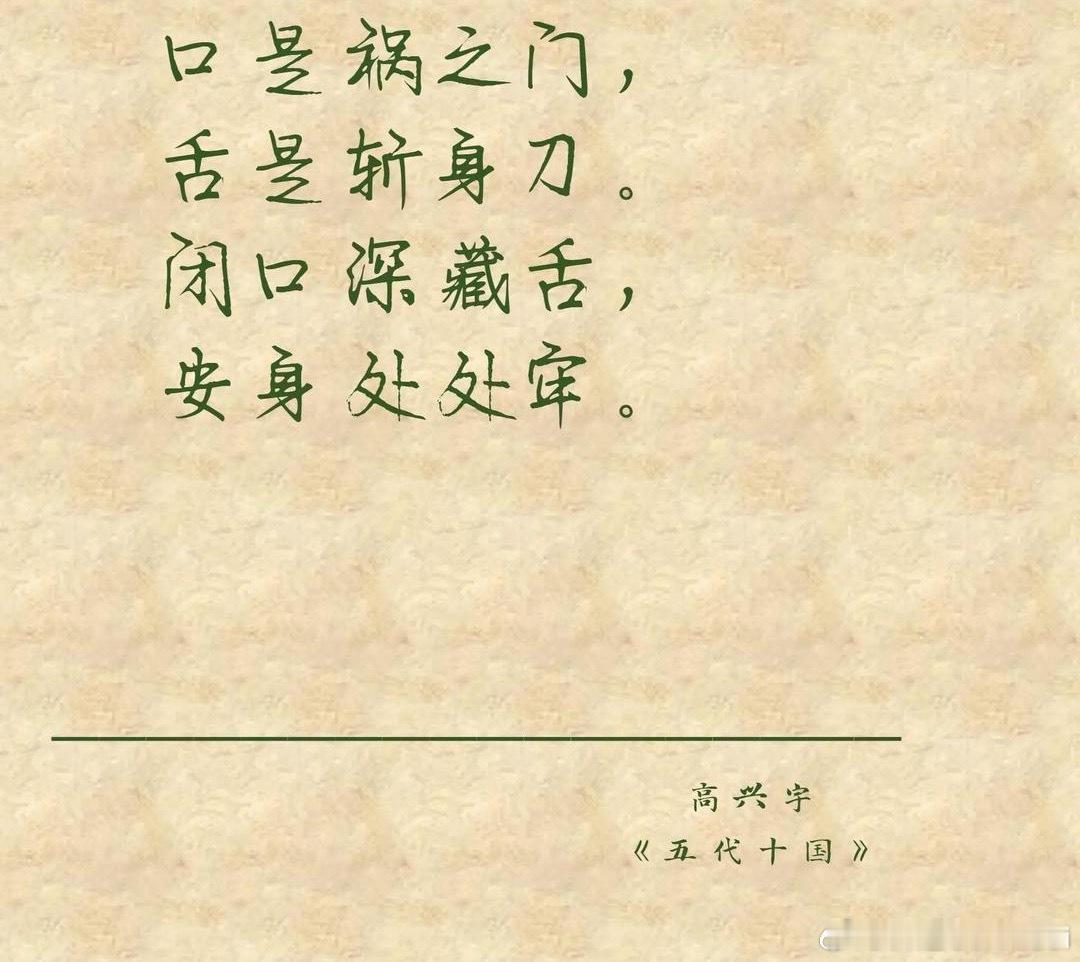 口是祸之门，
舌是斩身刀。
闭口深藏舌，
安身处处牢。
高兴宇
《五代十国》